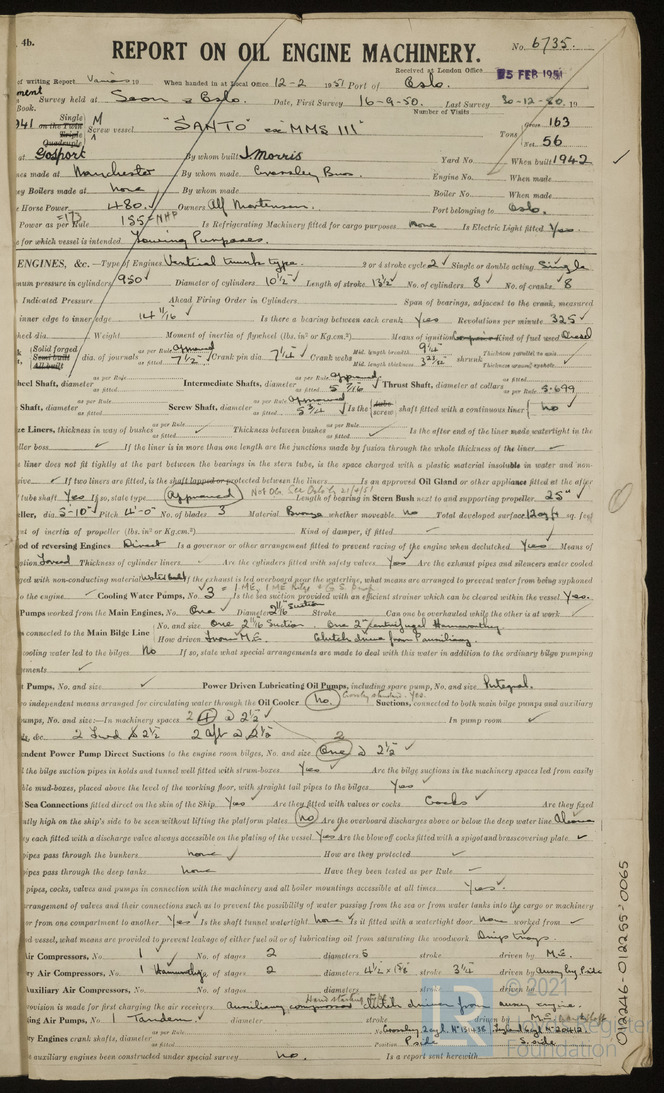 4b.
REPORT ON OIL ENGINE MACHINERY.
No. 6735.
Received at London Office 5 FEB 1951
of writing Report 19 When handed in at Local Office 12-2 1951 Port of Oslo.
Survey held at Seon & Oslo. Date, First Survey 16-9-50. Last Survey 30-12-50. 19
Book.
Number of Visits
941 Single on the Twin Triple Quadruple Screw vessel "SANTO" ex "MMS 111" Tons Gross 163 Net 56
at Gosport By whom built J. Morris Yard No. When built 1942
nes made at Manchester By whom made Crossley Bros. Engine No. When made
ey Boilers made at None By whom made Boiler No. When made
e Horse Power 480. Owners Alf Mortensen. Port belonging to Oslo.
Power as per Rule =173 155=NHP Is Refrigerating Machinery fitted for cargo purposes None Is Electric Light fitted Yes.
e for which vessel is intended Towing Purposes.
ENGINES, &c.—Type of Engines Vertical trunk type. 2 or 4 stroke cycle 2 Single or double acting Single
mum pressure in cylinders 950 Diameter of cylinders 10½" Length of stroke 13½" No. of cylinders 8 No. of cranks 8
Indicated Pressure Ahead Firing Order in Cylinders Span of bearings, adjacent to the crank, measured
inner edge to inner edge 14 11/16" Is there a bearing between each crank Yes Revolutions per minute 325
heel dia. Weight Moment of inertia of flywheel (lbs. in² or Kg.cm.²) Means of ignition Compression Kind of fuel used Diesel
Solid forged Semi built All built dia. of journals as per Rule approved as fitted 7½" Crank pin dia. 7¼" Crank webs Mid. length breadth 9¼" Mid. length thickness shrunk Thickness parallel to axis Thickness around eyehole
heel Shaft, diameter as per Rule as fitted Intermediate Shafts, diameter as per Rule approved as fitted 5 7/16" Thrust Shaft, diameter at collars as per Rule as fitted 5.699
Shaft, diameter as per Rule as fitted Screw Shaft, diameter as per Rule approved as fitted 5¾" Is the tube screw shaft fitted with a continuous liner No
ze Liners, thickness in way of bushes as per Rule as fitted Thickness between bushes as per Rule as fitted Is the after end of the liner made watertight in the
ller boss If the liner is in more than one length are the junctions made by fusion through the whole thickness of the liner
e liner does not fit tightly at the part between the bearings in the stern tube, is the space charged with a plastic material insoluble in water and non-
sive If two liners are fitted, is the shaft lapped or protected between the liners Is an approved Oil Gland or other appliance fitted at the after
tube shaft Yes If so, state type Approved Length of bearing in Stern Bush next to and supporting propeller 25"
ller, dia 5'-10" Pitch 4'-0" No. of blades 3 Material Bronze whether moveable No Total developed surface sq. feet
nt of inertia of propeller (lbs. in² or Kg.cm.²) Kind of damper, if fitted
od of reversing Engines Direct Is a governor or other arrangement fitted to prevent racing of the engine when declutched Yes Means of
ation Forced Thickness of cylinder liners Are the cylinders fitted with safety valves Yes Are the exhaust pipes and silencers water cooled
ged with non-conducting material If the exhaust is led overboard near the waterline, what means are arranged to prevent water from being syphoned
the engine Cooling Water Pumps, No. 3 Is the sea suction provided with an efficient strainer which can be cleared within the vessel Yes.
Pumps worked from the Main Engines, No. One Diameter 2 11/16" Suction Stroke Can one be overhauled while the other is at work
s connected to the Main Bilge Line No. and size One 2 11/16" Suction. One 2" centrifugal Hamworthy
How driven From M.E. Clutch drive from P auxiliary.
cooling water led to the bilges No If so, state what special arrangements are made to deal with this water in addition to the ordinary bilge pumping
ements
Pumps, No. and size Power Driven Lubricating Oil Pumps, including spare pump, No. and size Integral.
o independent means arranged for circulating water through the Oil Cooler No. Suctions, connected to both main bilge pumps and auxiliary
umps, No. and size:—In machinery spaces 2 4 @ 2½" In pump room
ds, &c. 2 Fwd @ 2½ 2 aft @ 2½" 2
ndent Power Pump Direct Suctions to the engine room bilges, No. and size One @ 2½"
l the bilge suction pipes in holds and tunnel well fitted with strum-boxes Yes Are the bilge suctions in the machinery spaces led from easily
ble mud-boxes, placed above the level of the working floor, with straight tail pipes to the bilges Yes
Sea Connections fitted direct on the skin of the Ship Yes Are they fitted with valves or cocks Cocks Are they fixed
ntly high on the ship's side to be seen without lifting the platform plates No Are the overboard discharges above or below the deep water line Above
y each fitted with a discharge valve always accessible on the plating of the vessel Yes Are the blow off cocks fitted with a spigot and brass covering plate
pipes pass through the bunkers None How are they protected
pipes pass through the deep tanks None Have they been tested as per Rule
pipes, cocks, valves and pumps in connection with the machinery and all boiler mountings accessible at all times Yes.
arrangement of valves and their connections such as to prevent the possibility of water passing from the sea or from water tanks into the cargo or machinery
er from one compartment to another Yes Is the shaft tunnel watertight None Is it fitted with a watertight door None worked from
ed vessel, what means are provided to prevent leakage of either fuel oil or of lubricating oil from saturating the woodwork Drip trays.
Air Compressors, No. 1 No. of stages 2 diameters 5 stroke driven by M.E.
ry Air Compressors, No. 1 Hamworthy No. of stages 2 diameters stroke 3¼ driven by
Auxiliary Air Compressors, No. No. of stages diameters stroke driven by
rovision is made for first charging the air receivers Auxiliary compressor clutch driven from auxy engine.
ing Air Pumps, No. 1 Tandem diameter stroke driven by M.E.
ry Engines crank shafts, diameter as per Rule as fitted No. Crossley 2 cyl. Nº 131438
Position P side S. side
auxiliary engines been constructed under special survey No. Is a report sent herewith
012246-012255-0065
© 2021
LR
Lloyd's Register
Foundation